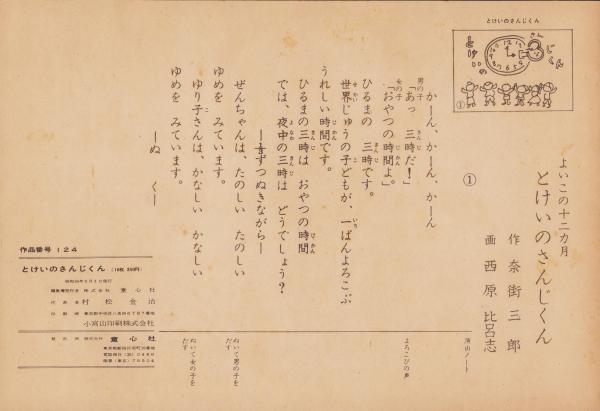 とけいのさんじくん
とけいの
さん
じ
くん
①
よいこの十二カ月
とけいのさんじくん
作 奈街三郎
画 西原比呂志
①
かーん、かーん、かーん
男の子
「あっ 三時だ!」
女の子
「おやつの時間よ。」
ひるまの 三時です。
世界じゅうの子どもが、一ばんよろこぶ
うれしい時間です。
ひるまの三時は おやつの時間
では、夜中の三時は どうでしょう?
―半分ずつぬきながら―
ぜんちゃんは、たのしい たのしい
ゆめを みています。
ゆり子さんは、かなしい かなしい
ゆめを みています。
―ぬ く―
演出ノート
よろこびの声
ぬいて男の子を
だす
ぬいて女の子を
だす
作品番号 124
とけいのさんじくん
株式会社 童心社
代表者 村松金治
小宮山印刷株式会社
発売所 株式会社 童心社